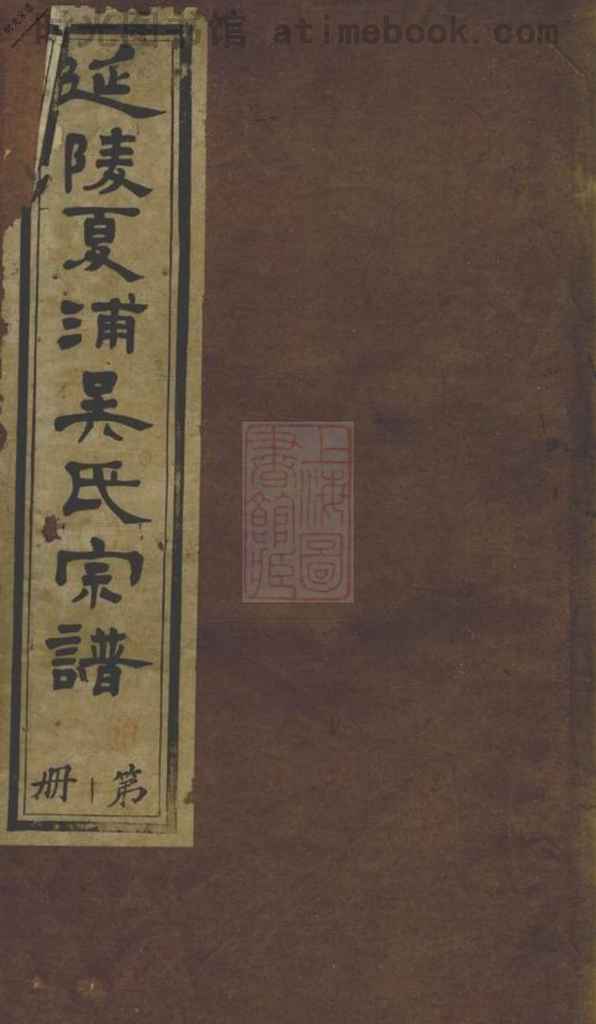 时光图书馆 atimebook.com
延陵夏浦吴氏宗譜
第一册
上海圖
書館藏